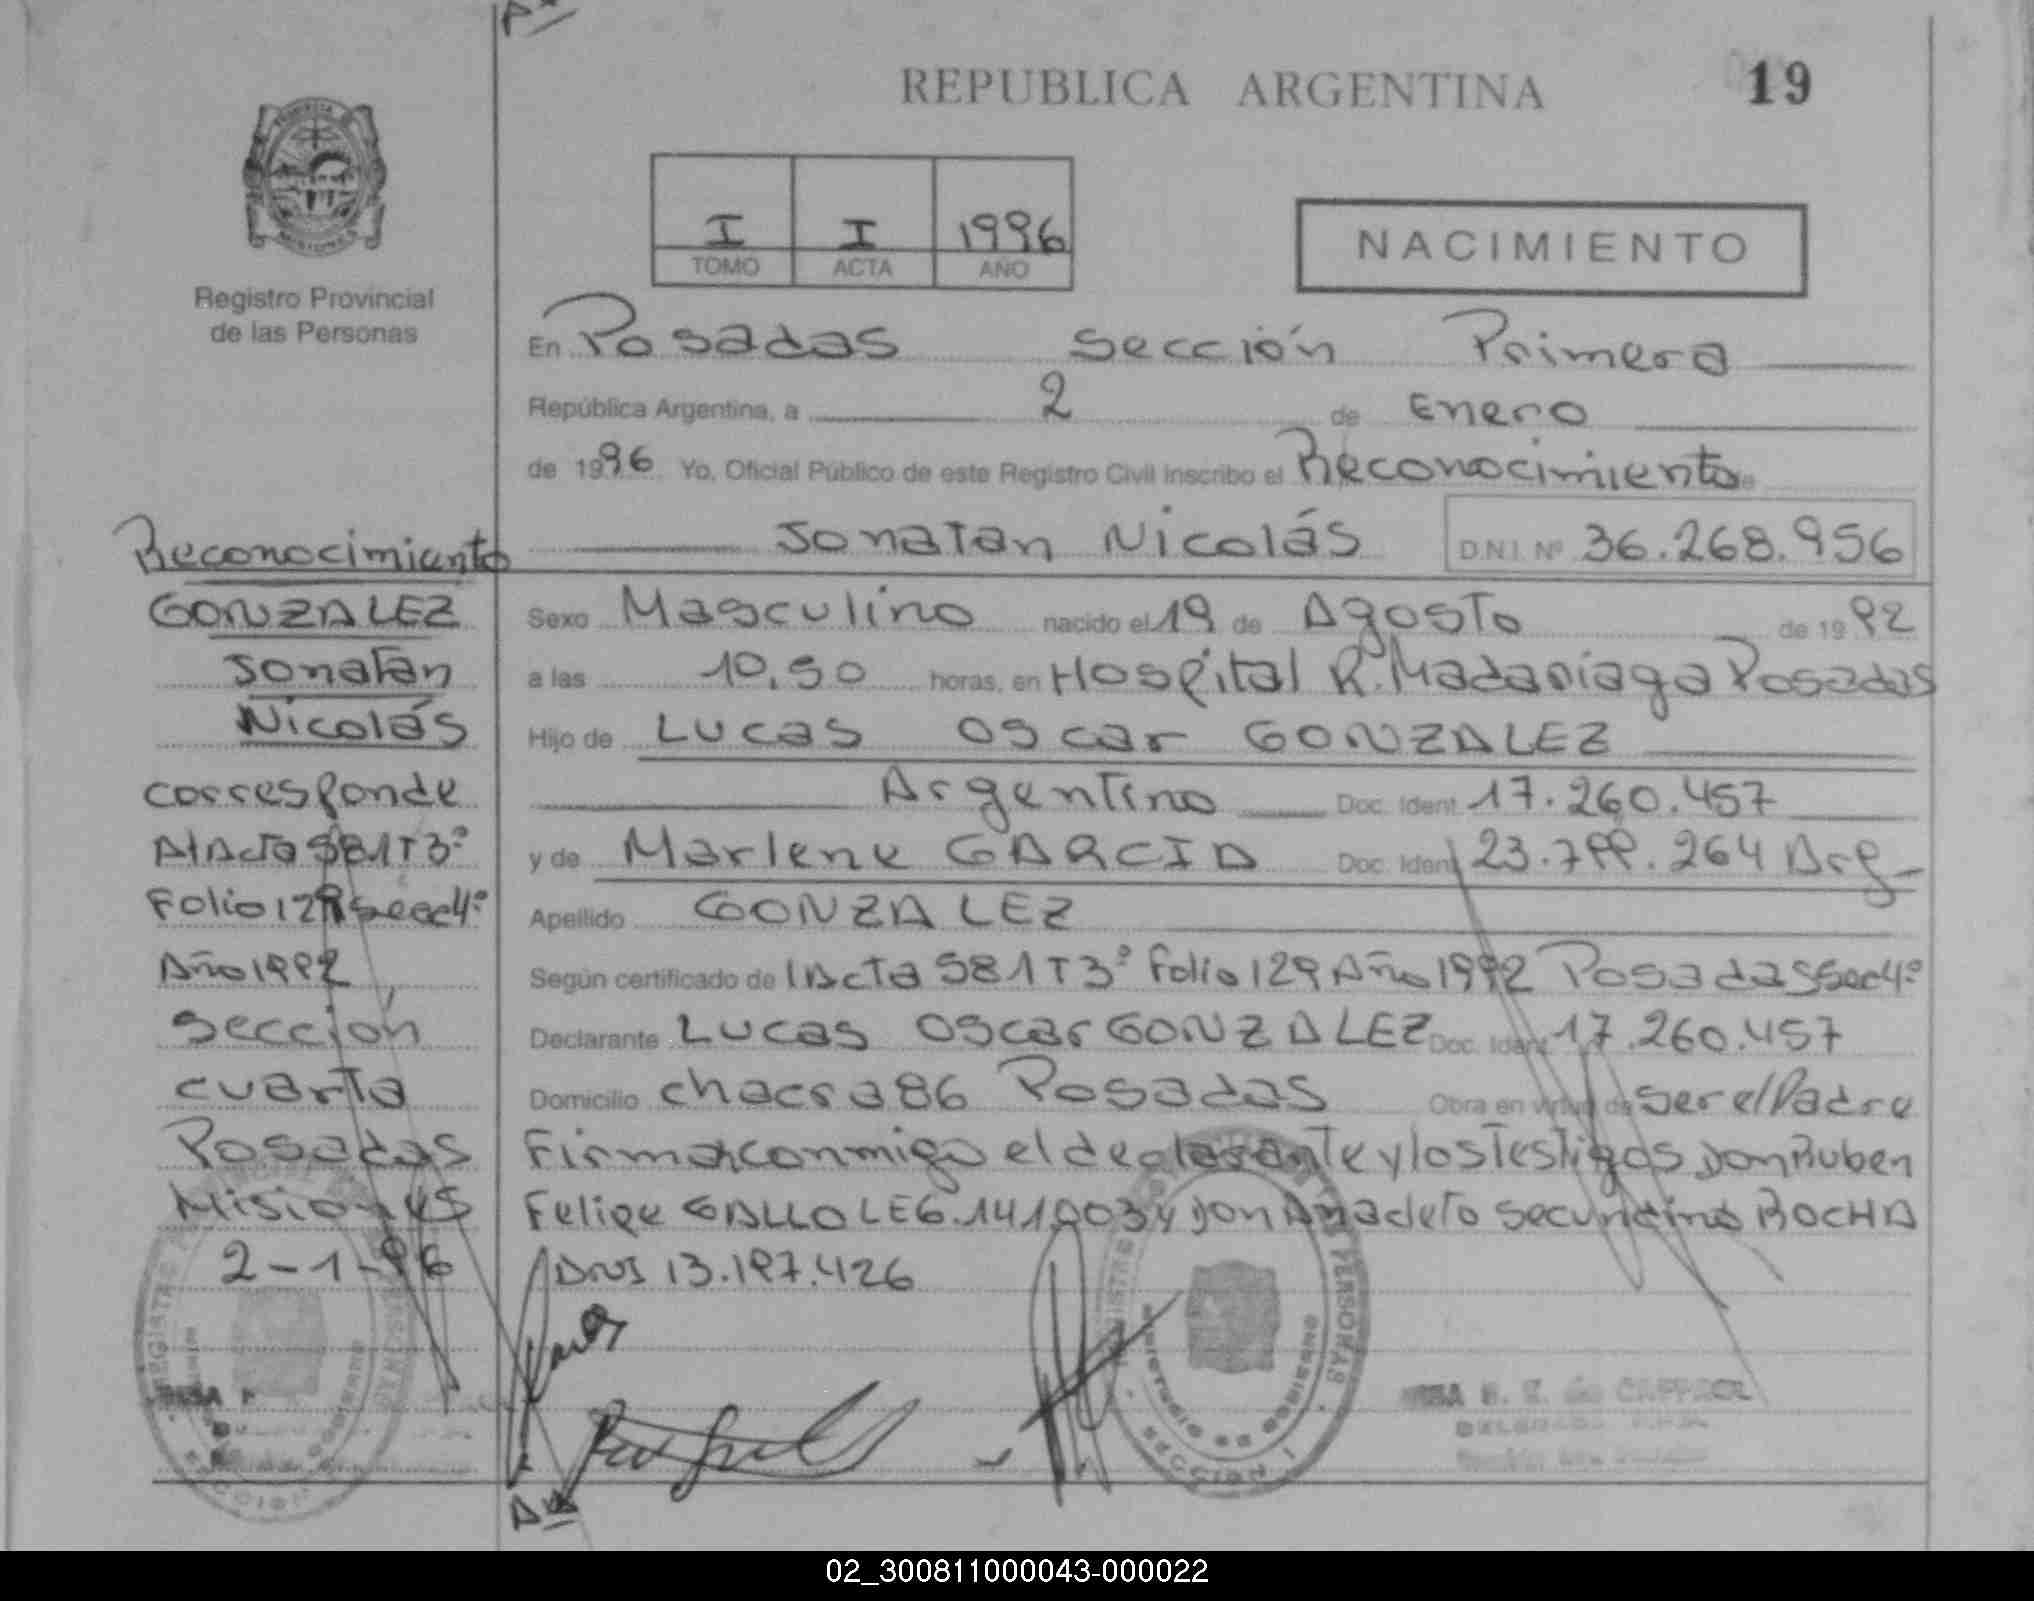 REPUBLICA ARGENTINA
19
I I 1996
TOMO ACTA AÑO
NACIMIENTO
Registro Provincial
de las Personas
En Posadas Sección Primera
República Argentina, a 2 de Enero
de 1996 Yo, Oficial Público de este Registro Civil inscribo el Reconocimiento
Jonatan Nicolás D.N.I. Nº 36.268.956
Sexo Masculino nacido el 19 de Agosto de 1992
a las 10,50 horas, en Hospital R. Madariaga Posadas
Hijo de Lucas Oscar GONZALEZ
Argentino Doc. Ident. 17.260.457
y de Marlene GARCIA Doc. Ident 23.799.264 Arg
Apellido GONZALEZ
Según certificado de Acta 581 T 3º Folio 129 Año 1992 Posadas Sec 4º
Declarante Lucas Oscar GONZALEZ Doc. Ident. 17.260.457
Domicilio chacra 86 Posadas Obra en virtud de ser el Padre
Firman conmigo el declarante y los Testigos Don Ruben
Felipe GALLO LEG. 141003 y Don Anacleto Secundino ROCHA
DNI 13.197.426
Reconocimiento
GONZALEZ
Jonatan
Nicolás
corresponde
Al Acta 581 T 3º
Folio 129 Secc 4º
Año 1992
Sección
cuarta
Posadas
Misiones
2-1-96
02_300811000043-000022